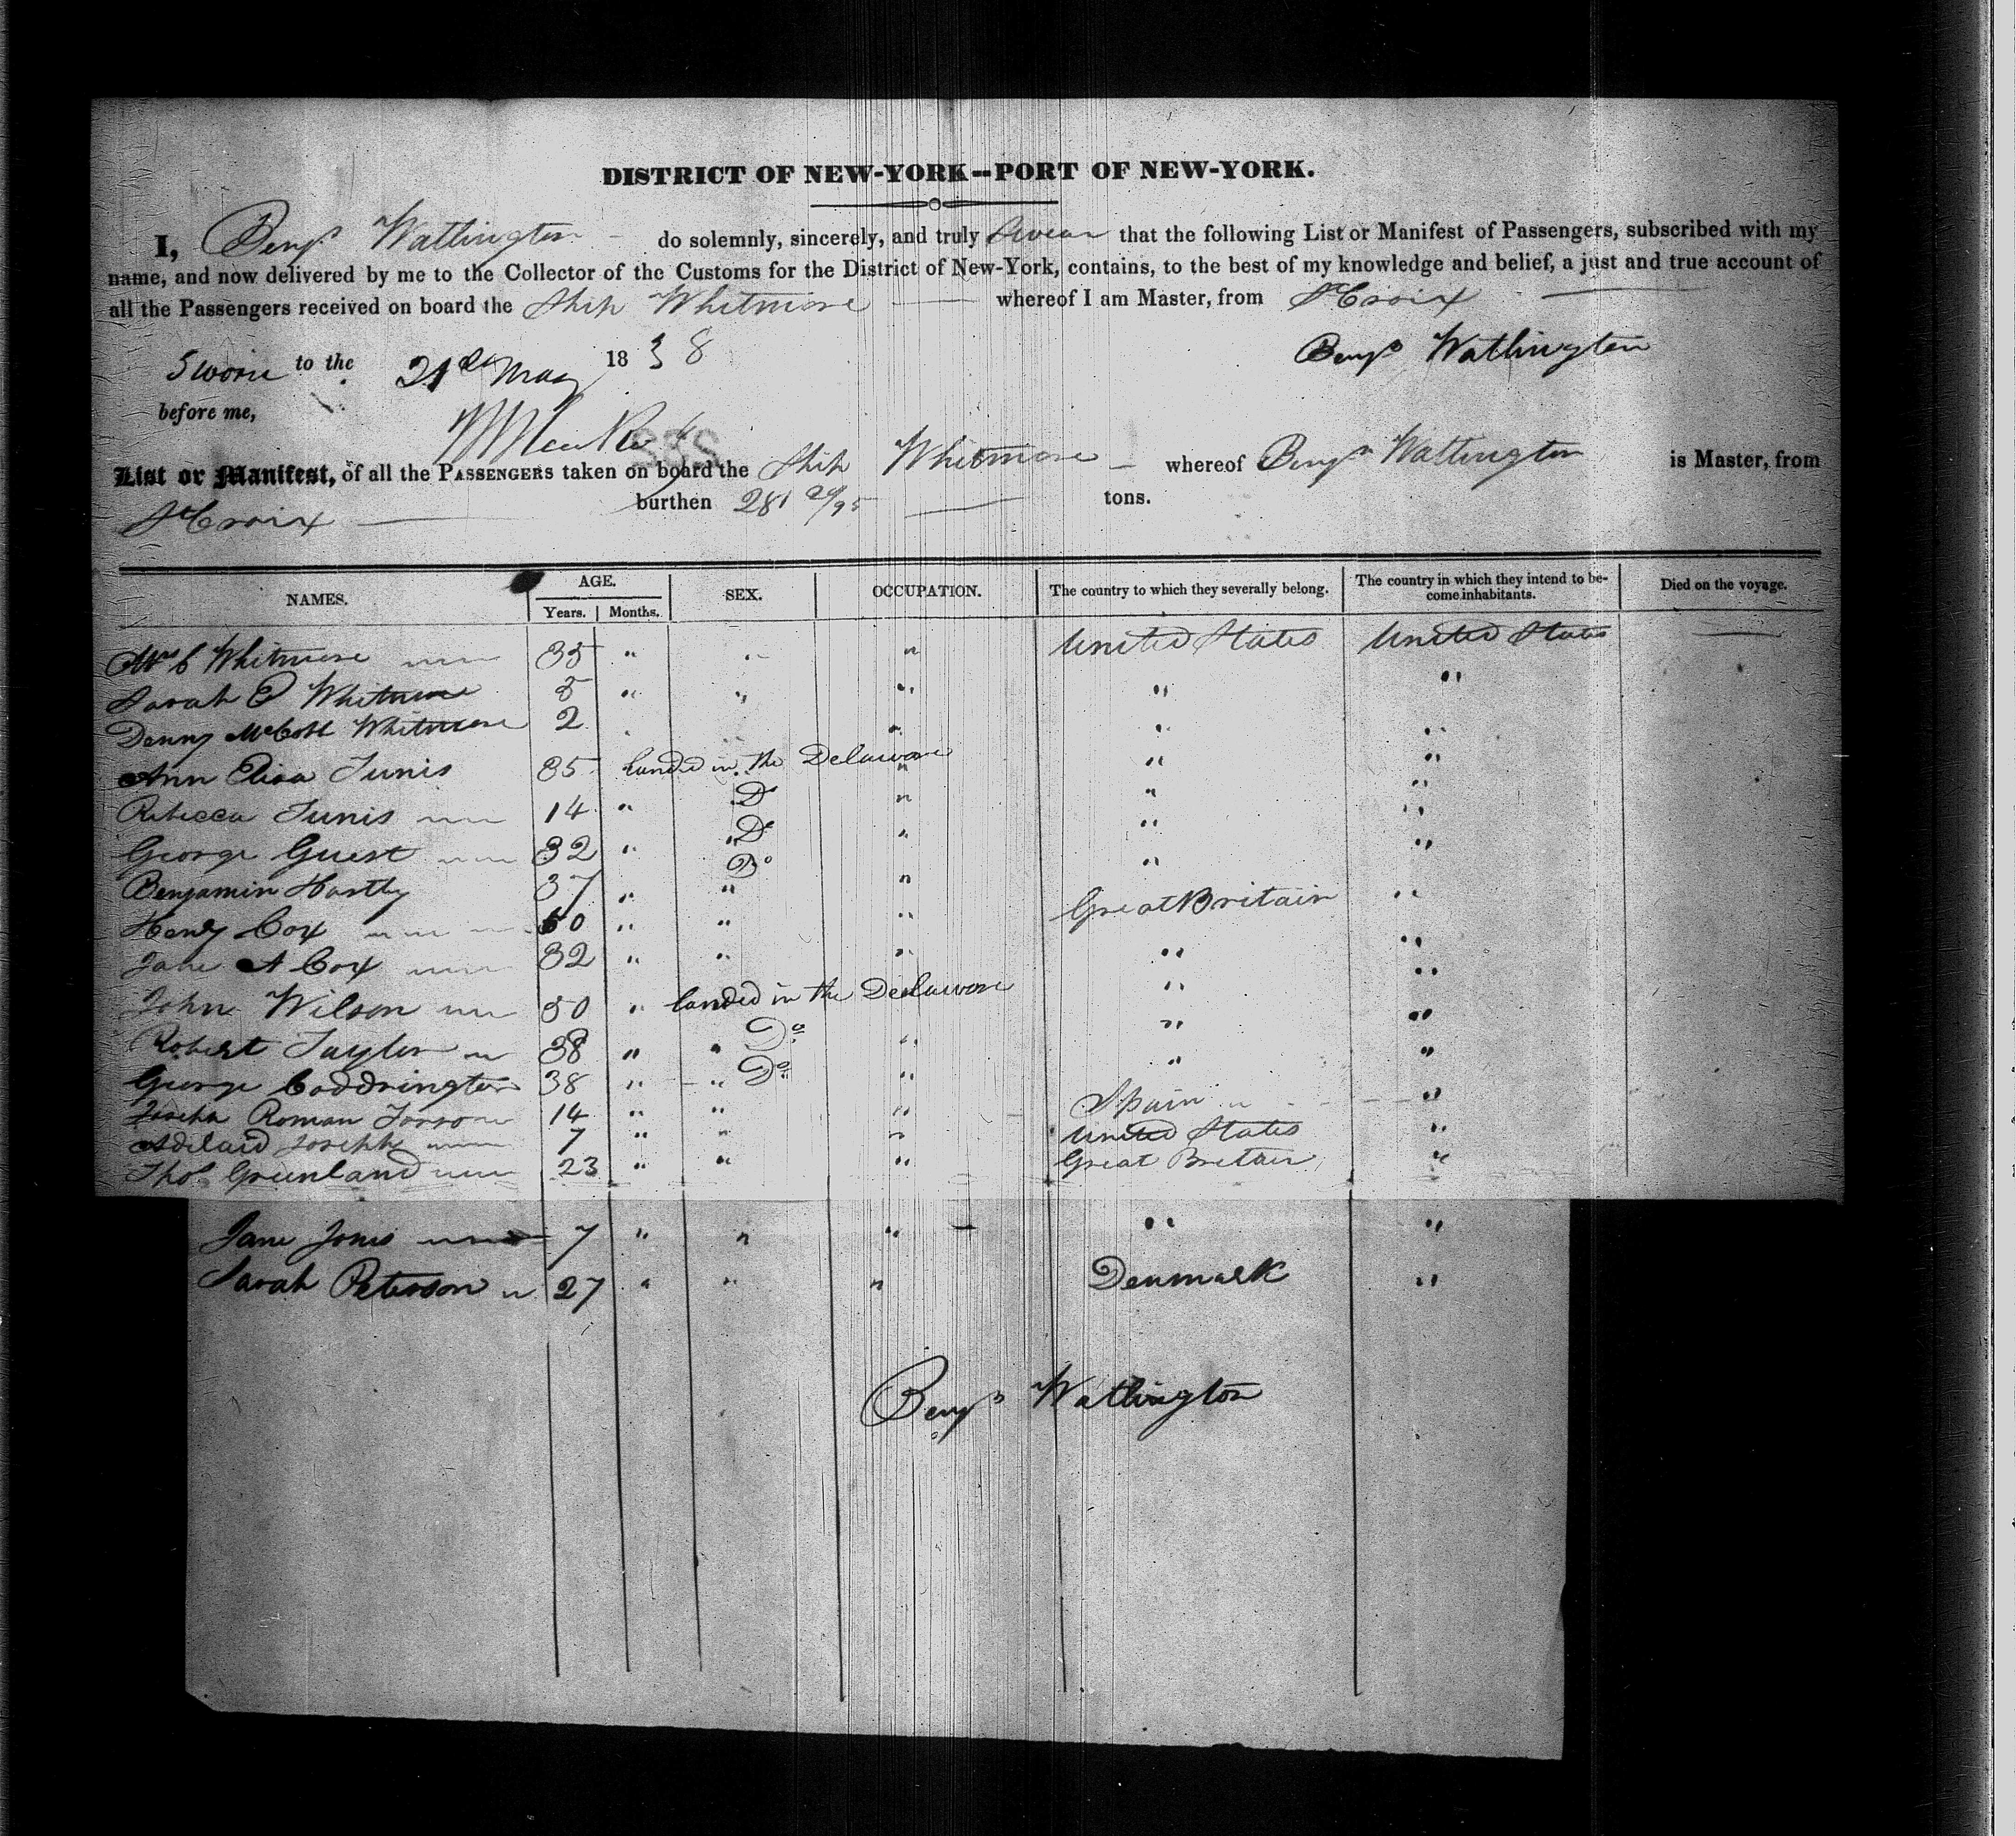 DISTRICT OF NEW-YORK--PORT OF NEW-YORK.
I, Benjn Watlington do solemnly, sincerely, and truly Swear that the following List or Manifest of Passengers, subscribed with my
name, and now delivered by me to the Collector of the Customs for the District of New-York, contains, to the best of my knowledge and belief, a just and true account of
all the Passengers received on board the Ship Whitmore whereof I am Master, from St Croix
Sworn to the 21st May 1838 Benjn Watlington
before me,
List or Manifest, of all the PASSENGERS taken on board the Ship Whitmore whereof Benjn Watlington is Master, from
St Croix burthen 281 20/95 tons.
NAMES. AGE. Years. Months. SEX. OCCUPATION. The country to which they severally belong. The country in which they intend to be-come inhabitants. Died on the voyage.
Mrs C Whitmore 35 " " " United States United States
Sarah E Whitmore 5 " " " " "
Denny McCobb Whitmore 2 " " " "
Ann Eliza Tunis 35 landed in the Delaware " " "
Rebecca Tunis 14 " Do " " "
George Guest 32 " Do " " "
Benjamin Hartly 37 " Do " " "
Henry Cox 50 " " " Great Britain "
Jane A Cox 32 " " " " "
John Wilson 50 " landed in the Delaware " "
Robert Taylor 38 " " Do " " "
George Coddrington 38 " " Do " " "
Joseph Roman 14 " " " Spain "
Adelaid Joseph 7 " " " United States "
Thos Greenland 23 " " " Great Britain "
Jane Jones 7 " " " " "
Sarah Peterson 27 " " " Denmark "
Benjn Watlington